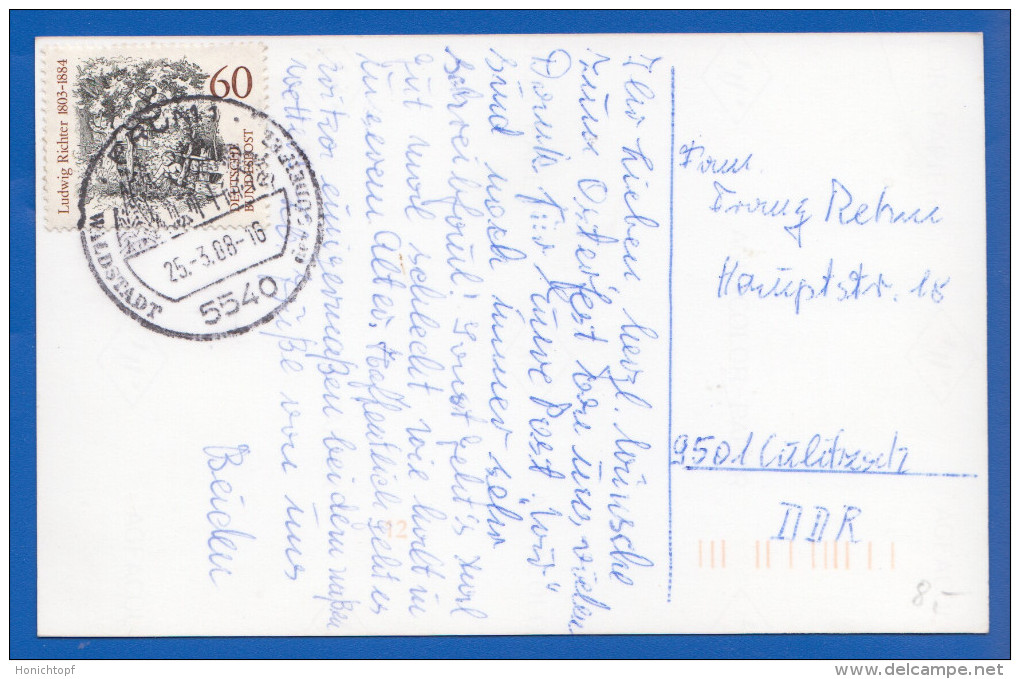 Ludwig Richter 1803-1884
60
DEUTSCHE
BUNDESPOST
PRÜM 1
WALDSTADT
25.-3.88-16
5540
Ihr Lieben herzl. Wünsche
zum Osterfest von uns, vielen
Dank für Eure Post. "Wir"
sind noch immer sehr
schreibfaul! Sonst geht's mal
gut mal schlecht wie halt in
unserem Alter. Hoffentlich geht es
einigermaßen bei dem
Grüße von uns
Beiden
Hauptstr. 18
9501 Culitzsch
DDR
12
8,-
Honichtopf
www.delcampe.net